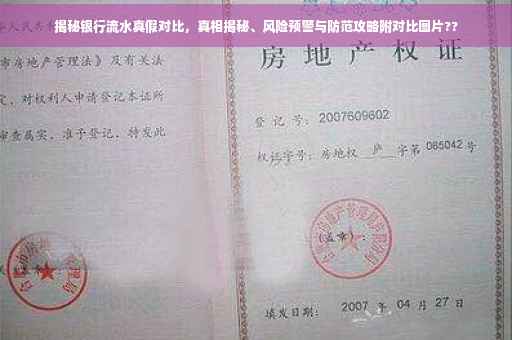 揭秘银行流水真假对比，真相揭秘、风险预警与防范攻略附对比图片??
华人民共和
市房地产管理法》及有关法
定，对权利人申请登记本证所
审查属实，准予登记，特发此
房地产权证
登记号：2007609602
权证字号：房地权 庐 字第 065042 号
(盖章)：
填发日期： 2007 年 04 月 27 日